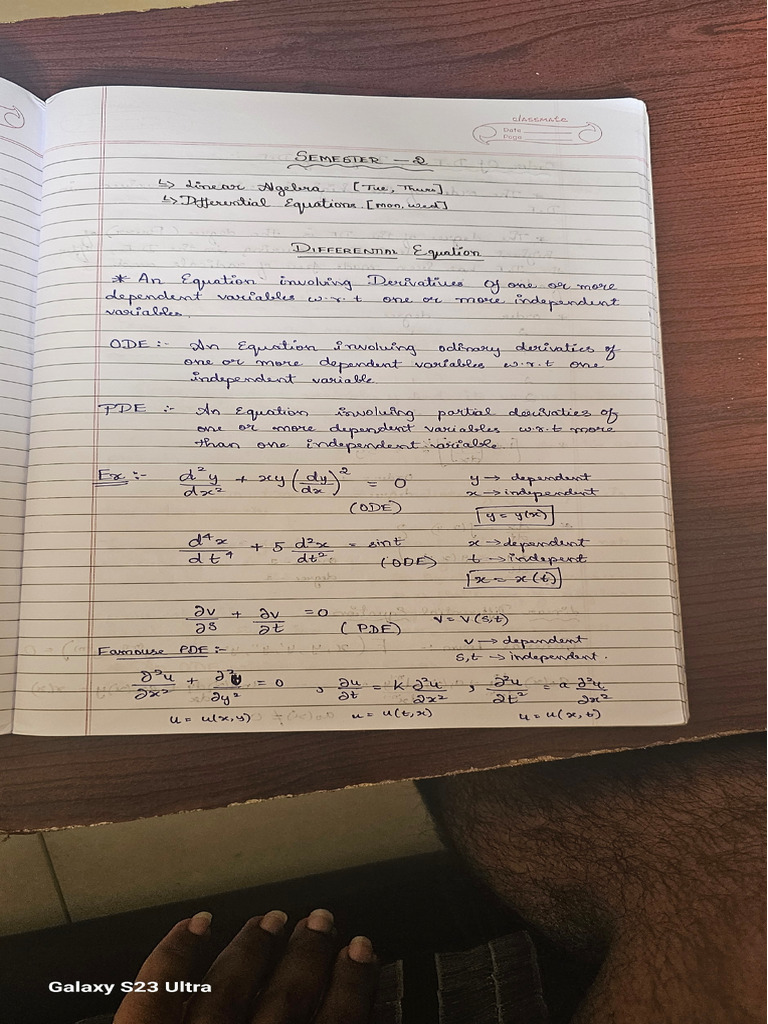 classmate
Date
Page
SEMESTER - 2
↳ Linear Algebra [Tue, Thurs]
↳ Differential Equations [Mon, Wed]
DIFFERENTIAL Equation
* An Equation involving Derivatives of one or more
dependent variables w.r.t one or more independent
variables.
ODE :- An Equation involving odinary derivaties of
one or more dependent variables w.r.t one
independent variable.
PDE :- An Equation involving partial derivaties of
one or more dependent variables w.r.t more
than one independent variable.
Ex :- d²y/dx² + xy(dy/dx)² = 0 y → dependent
x → independent
(ODE) y = y(x)
d⁴x/dt⁴ + 5 d²x/dt² = sint x → dependent
(ODE) t → indepent
x = x(t)
∂v/∂s + ∂v/∂t = 0 (PDE) v = v(s,t)
v → dependent
Famouse PDE :- s,t → independent.
∂²u/∂x² + ∂²u/∂y² = 0 , ∂u/∂t = k ∂²u/∂x² , ∂²u/∂t² = a ∂²u/∂x²
u = u(x,y) u = u(t,x) u = u(x,t)
Galaxy S23 Ultra